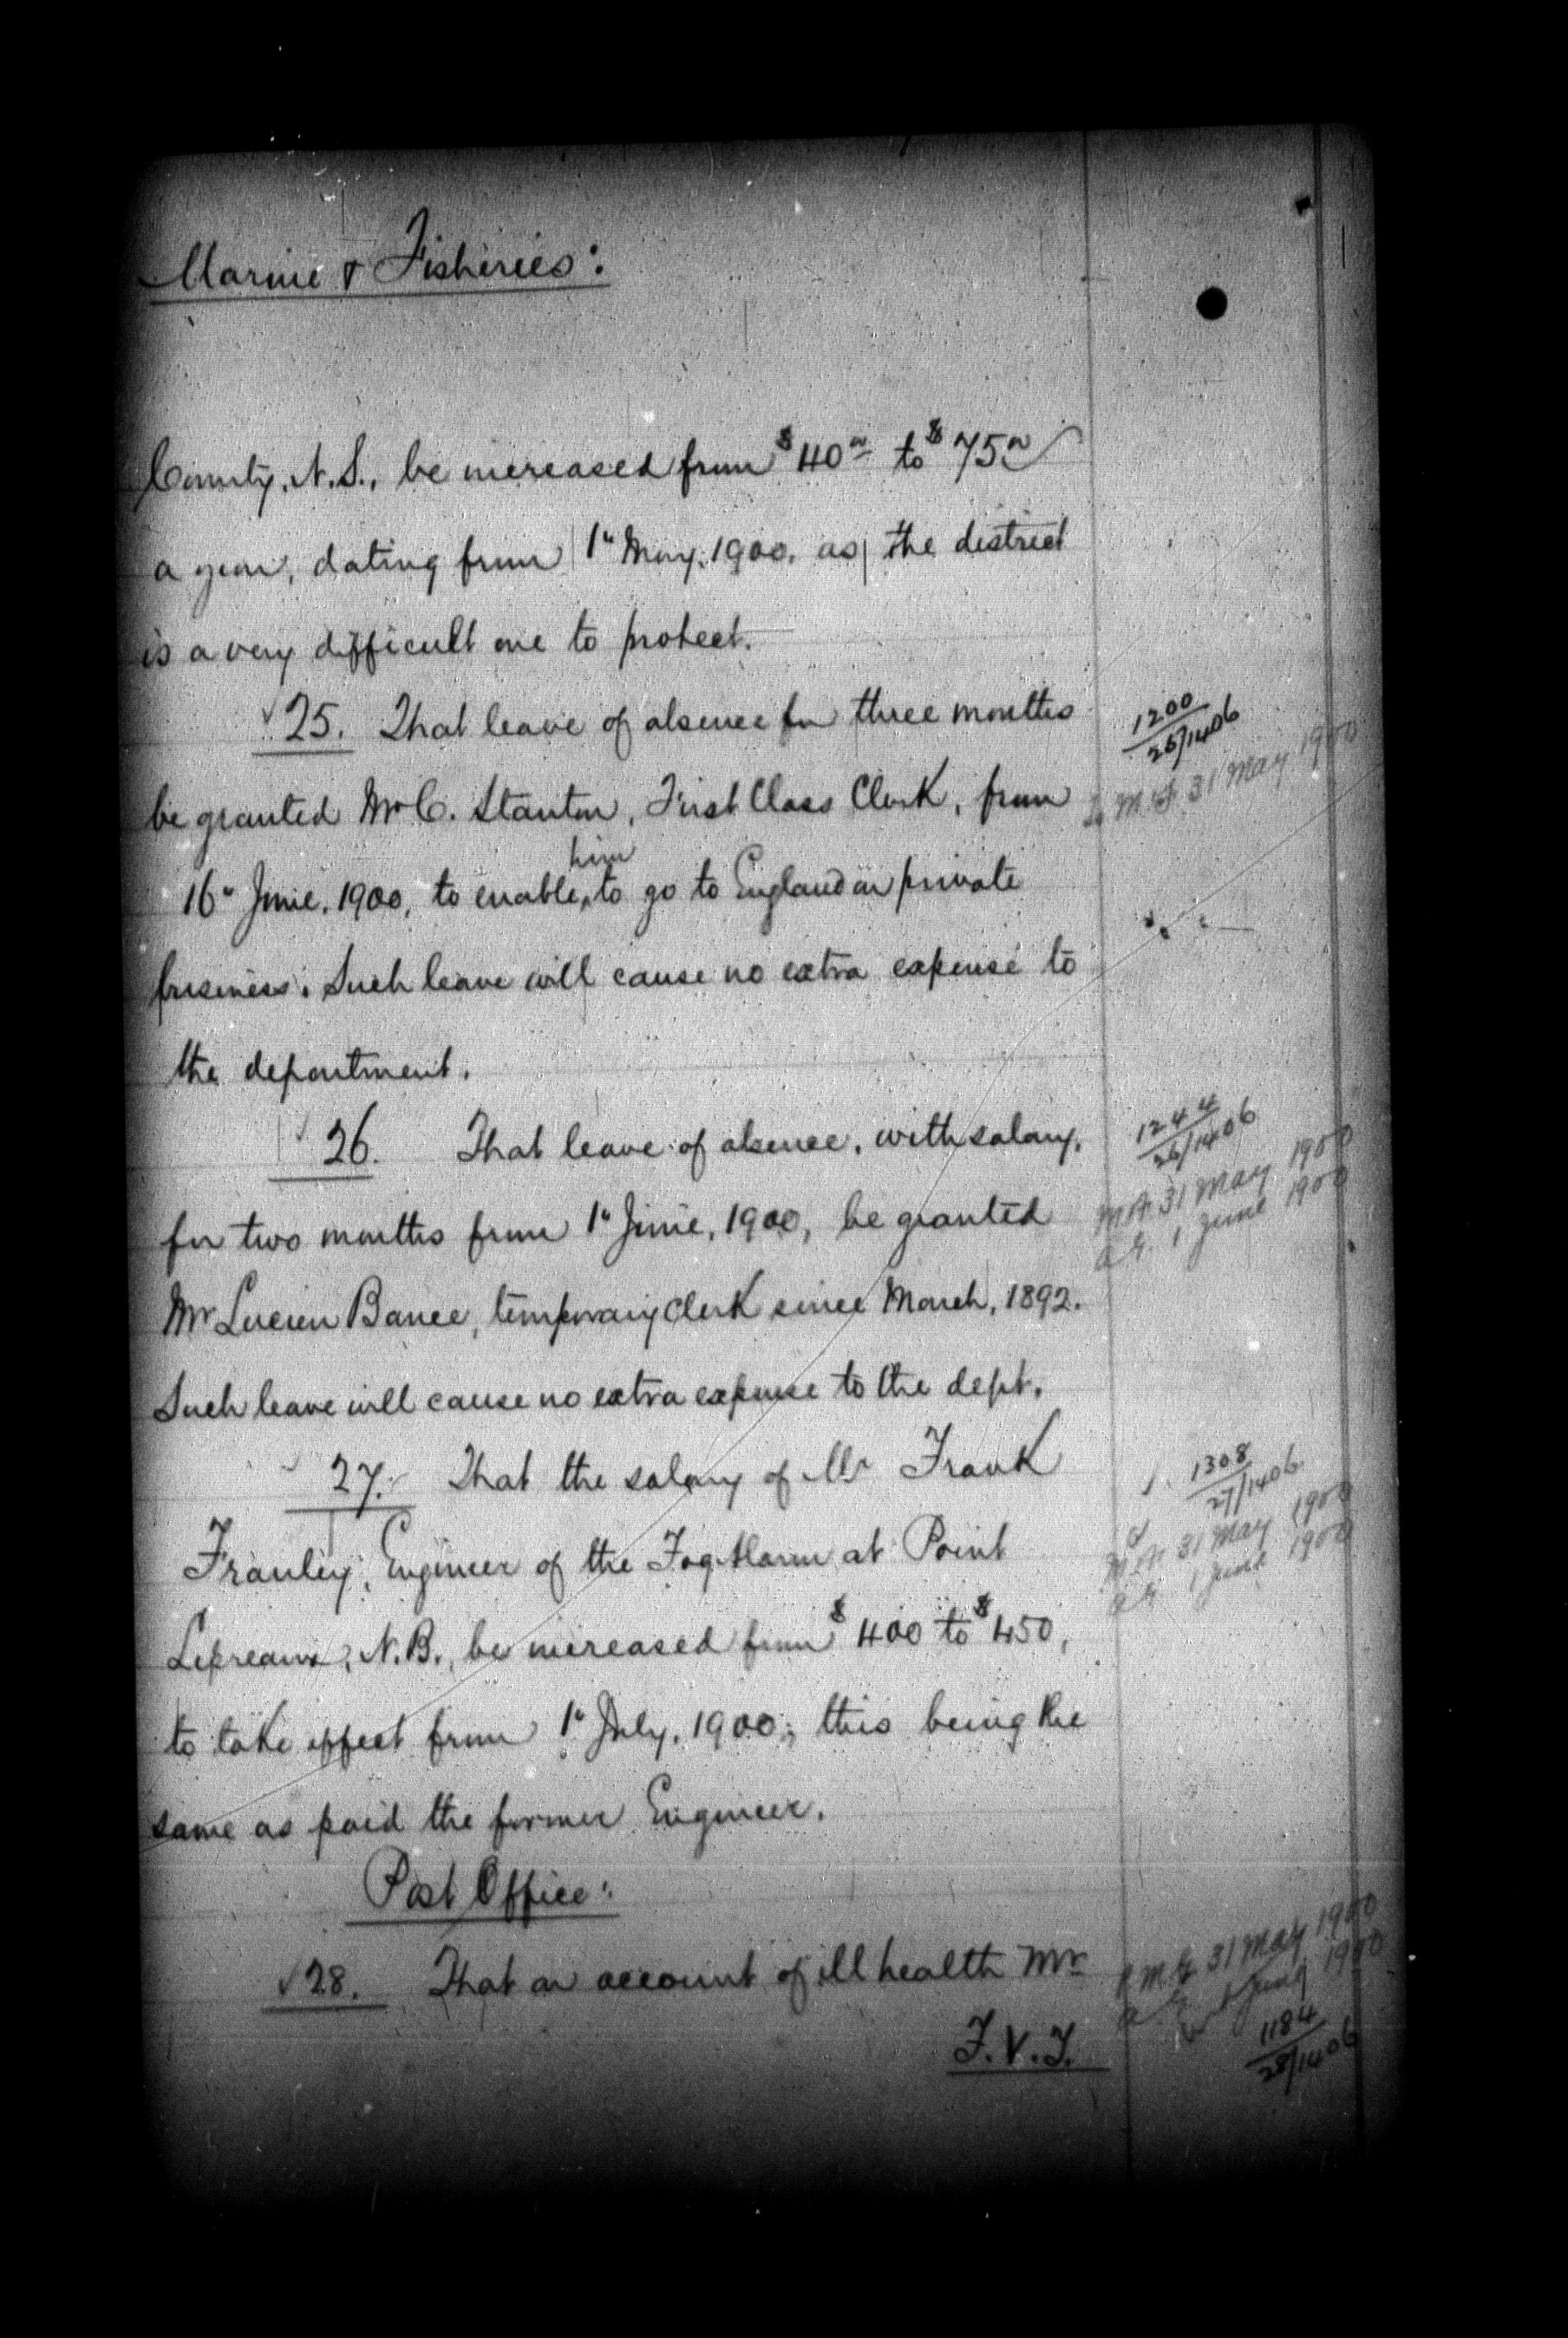 Marine & Fisheries:
County, N.S., be increased from $40.00 to $75.00
a year, dating from 1st May, 1900, as the district
is a very difficult one to protect.
25. That leave of absence for three months
1200
25/1406
M.&F. 31 May 1900
be granted Mr C. Stanton, First Class Clerk, from
16" June, 1900, to enable him to go to England on private
business. Such leave will cause no extra expense to
the department.
26. That leave of absence, with salary,
1244
26/1406
M.&F. 31 May 1900
A.G. 1 June 1900
for two months from 1st June, 1900, be granted
Mr Lucien Bance, temporary Clerk since March, 1892.
Such leave will cause no extra expense to the dept.
27. That the salary of Mr Frank
1308
27/1406
M.&F. 31 May 1900
A.G. 1 June 1900
Frauley, Engineer of the Fog-Alarm at Point
Lepreaux, N.B., be increased from $400 to $450,
to take effect from 1st July, 1900; this being the
same as paid the former Engineer.
Post Office:
28. That on account of ill health Mr
P.M.G. 31 May 1900
A.G. 1 June 1900
1184
28/1406
F.V.T.